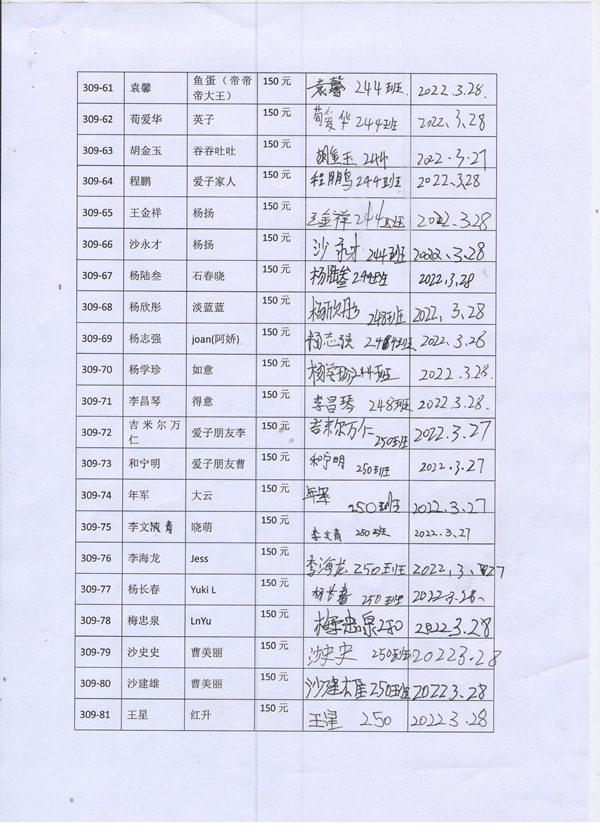 309-61 袁馨 鱼蛋（帝帝 150 元 袁馨 244班. 2022.3.28.
帝大王）
309-62 荀爱华 英子 150 元 荀爱华 244班 2022.3.28
309-63 胡金玉 吞吞吐吐 150 元 胡金玉 244 2022.3.27
309-64 程鹏 爱子家人 150 元 程鹏 244班 2022.3.28
309-65 王金祥 杨扬 150 元 王金祥 244班 2022.3.28
309-66 沙永才 杨扬 150 元 沙永才 244班 2022.3.28
309-67 杨陆叁 石春晓 150 元 杨陆叁 244班 2022.3.28
309-68 杨欣彤 淡蓝蓝 150 元 杨欣彤 248班 2022.3.28
309-69 杨志强 joan(阿娇) 150 元 杨志强 244班 2022.3.26
309-70 杨学珍 如意 150 元 杨学珍 244班 2022.3.28.
309-71 李昌琴 得意 150 元 李昌琴 248班 2022.3.28.
309-72 吉米尔万 爱子朋友李 150 元 吉米尔万仁 250班 2022.3.27
仁
309-73 和宁明 爱子朋友曹 150 元 和宁明 250班 2022.3.27
309-74 年军 大云 150 元 年军 250班 2022.3.27
309-75 李文青 晓萌 150 元 李文青 250班 2022.3.27
309-76 李海龙 Jess 150 元 李海龙 250班 2022.3.27
309-77 杨长春 Yuki L 150 元 杨长春 250班 2022.3.28.
309-78 梅忠泉 LnYu 150 元 梅忠泉 250 2022.3.28
309-79 沙史史 曹美丽 150 元 沙史史 250班 20223.28
309-80 沙建雄 曹美丽 150 元 沙建雄 250班 2022.3.28
309-81 王星 红升 150 元 王星 250 2022.3.28